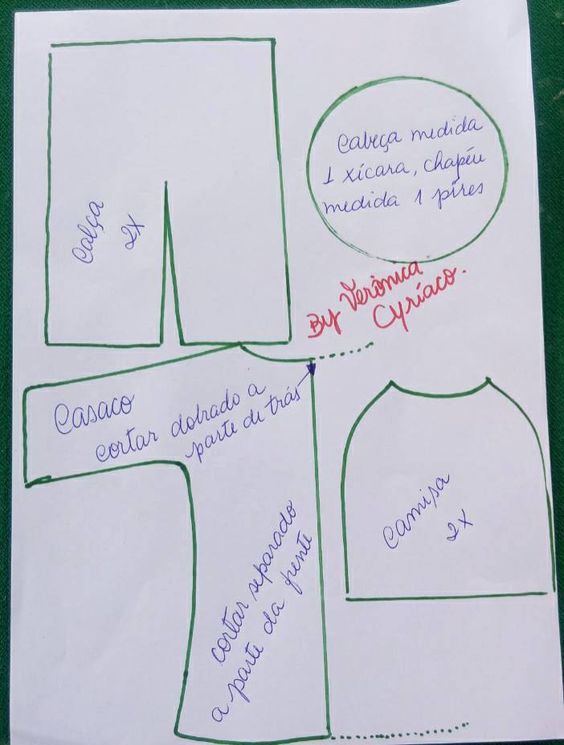 Cabeça medida
1 xícara, chapéu
medida 1 pires
Calça
2x
By Verônica
Cyríaco.
Casaco
cortar dobrado a
parte de trás
cortar separado
a parte da frente
Camisa
2x